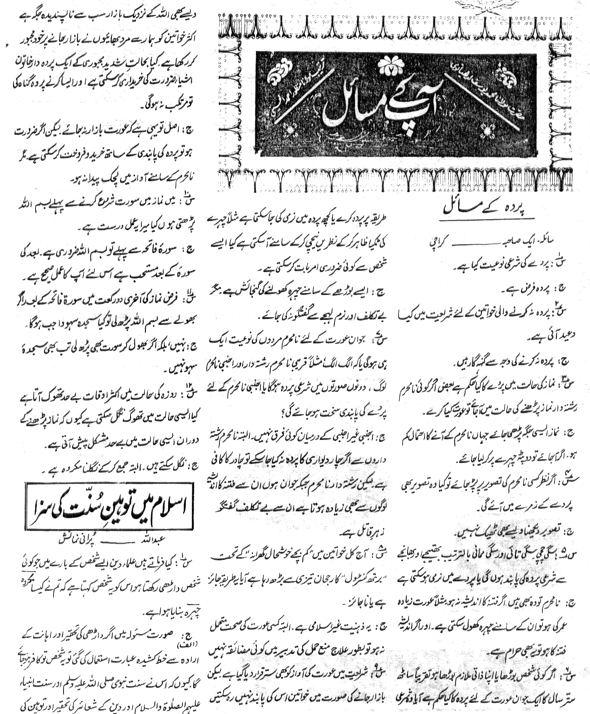 آپ کے مسائل
پردہ کے مسائل
سائلہ: ایک صاحبہ ـــــ کراچی
س: پردے کی شرعی نوعیت کیا ہے۔
ج: پردہ فرض ہے۔
س: پردہ نہ کرنے والی خواتین کے لئے شریعت میں کیا
وعید آئی ہے۔
ج: پردہ نہ کرنے کی وجہ سے گنہگار ہیں۔
س: نماز کی حالت میں پردے کا کیا حکم ہے بعض اگر کوئی نامحرم
رشتہ دار نماز پڑھنے کی حالت میں آجائے تو عورت کیا کرے۔
ج: نماز ایسی جگہ پڑھی جائے جہاں نامحرم کے آنے کا احتمال کم
ہو۔ اگر آجائے تو دوپٹہ چہرے پر کرلیا جائے۔
س: اگر نظر کسی نامحرم کی تصویر پر پڑ جائے تو کیا وہ تصویر بھی
پردے کے زمرے میں آئے گی۔
ج: تصویر دیکھنا ویسے بھی ٹھیک نہیں۔
س: سگی چچی سگی تائی اور سگی ممانی بالترتیب بھتیجے و بھانجے
سے شرعی پردہ کی پابند ہوں گی یا پردے میں نرمی ہوسکتی ہے
ج: نامحرم تو وہ بھی ہیں۔ اگر فتنہ کا اندیشہ نہ ہو مثلاً عورت زیادہ
عمر کی ہو تو ان کے سامنے چہرہ کھول سکتی ہے۔ اور اگر اندیشہ
فتنہ کا ہو تو یہ بھی حرام ہے۔
س: اگر کوئی شخص بوڑھا یا اپنا ذاتی ملازم بوڑھا ہو تقریباً ساٹھ
ستر سال کا ایک جوان عورت کے لئے پردہ کا کیا حکم ہے آیا وہ شرعی
طریقہ پر پردہ کرے یا کچھ پردہ میں نرمی کی جاسکتی ہے مثلاً چہرے
کی ٹکیا ظاہر کر کے نظریں نیچی کر کے سامنے آسکتی ہے کیا ایسے
شخص سے کوئی ضروری امر بات کرسکتی ہے۔
ج: ایسے بوڑھے کے سامنے چہرہ کھولنے کی گنجائش ہے مگر
بے تکلف اور نرم لہجے سے گفتگو نہ کی جائے۔
س: جوان عورت کے لئے نامحرم مردوں کی نوعیت ایک
ہی ہوگی یا کہ الگ الگ مثلاً قریبی نامحرم رشتہ دار اور اجنبی نامحرم
لوگ، دونوں صورتوں میں شرعی پردہ ہوگا یا اجنبی نامحرم کے لئے
پردے کی پابندی سخت ہوجائے گی؟
ج: اجنبی غیر اجنبی کے درمیان کوئی فرق نہیں۔ البتہ نامحرم رشتہ
داروں سے اگر چار دیواری کا پردہ نہ کیا جاسکے تو چادر کا کافی
ہے لیکن رشتہ دار نامحرم جبکہ جوان ہوں ان سے فتنہ کا اندیشہ
لوگوں سے بھی زیادہ ہوتا ہے ان سے بے تکلف گفتگو
زہر قاتل ہے۔
س: آج کل خواتین میں "کم بچے خوشحال گھرانہ" کے تحت
"برتھ کنٹرول" کا رجحان تیزی سے بڑھ رہا ہے آیا یہ طریقہ جائز
ہے یا نا جائز۔
ج: یہ ذہنیت غیر اسلامی ہے۔ البتہ کسی عورت کی صحت متحمل
نہ ہو تو بطور علاج منع حمل کی تدبیر میں کوئی مضائقہ نہیں
س: شریعت میں عورت کی آواز کو بھی ستر قرار دیا گیا ہے، لیکن
بازار جانے کی صورت میں خواتین اس کی پابند نہیں رہ سکتیں
ویسے بھی اللہ کے نزدیک بازار سب سے ناپسندیدہ جگہ ہے
اکثر خواتین کو ہمارے مرد بھائیوں نے بازار جانے پر خود مجبور
کر رکھا ہے۔ کیا بحالت شدید مجبوری کے ایک پردہ دار خاتون
اشیاء ضرورت کی خریداری کرسکتی ہے اور ایسا کرنے پر وہ گناہ کی
تو مرتکب نہ ہوگی۔
ج: اصل تو یہی ہے کہ عورت بازار نہ جائے۔ لیکن اگر ضرورت
ہو تو پردہ کی پابندی کے ساتھ خرید و فروخت کرسکتی ہے۔ مگر
نامحرم کے سامنے آواز میں لچک پیدا نہ ہو۔
س: میں نماز میں سورت شروع کرنے سے پہلے بسم اللہ
پڑھتی ہوں کیا میرا یہ عمل درست ہے۔
ج: سورۃ فاتحہ سے پہلے تو بسم اللہ ضروری ہے۔ بعد کی
سورۃ کے بعد مستحب ہے اس لئے آپ کا عمل صحیح ہے۔
س: فرض نماز کی آخری دو رکعت میں سورۃ فاتحہ کے بعد اگر
بھولے سے بسم اللہ پڑھ لی تو کیا سجدہ سہو واجب ہوگا۔
ج: نہیں، بلکہ اگر بھول کر سورت بھی پڑھ لی تب بھی سجدۂ
سہو نہیں۔
س: روزہ کی حالت میں اکثر اوقات بے حد تھوک آتا ہے
کیا ایسی حالت میں تھوک نگل سکتی ہے کیوں کہ نماز پڑھنے کے
دوران ایسی حالت میں بے حد مشکل پیش آتی ہے۔
ج: نگل سکتے ہیں۔ البتہ جمع کر کے نگلنا مکروہ ہے۔
اسلام میں توہین سُنّت کی سزا
عبداللہ ـــــ پرانی نمائش
س: کیا فرماتے ہیں علماء دین ایسے شخص کے بارے میں جو کوئی
شخص داڑھی رکھتا ہو اس کو یہ شخص کہتا ہے کہ تم نے کیسا مکروہ
چہرہ بنایا ہوا ہے۔
ج: صورت مسئولہ میں اگر داڑھی کی تحقیر اور اہانت کے
(الف)
ارادہ سے خط کشیدہ عبارت استعمال کی گئی تو یہ شخص تو کافر ہو جائے
گا کیوں کہ اس نے سنت نبوی صلی اللہ علیہ وسلم اور سنت انبیاء
علیہم الصلوٰۃ والسلام اور دین کے شعائر کی تحقیر اور توہین کی